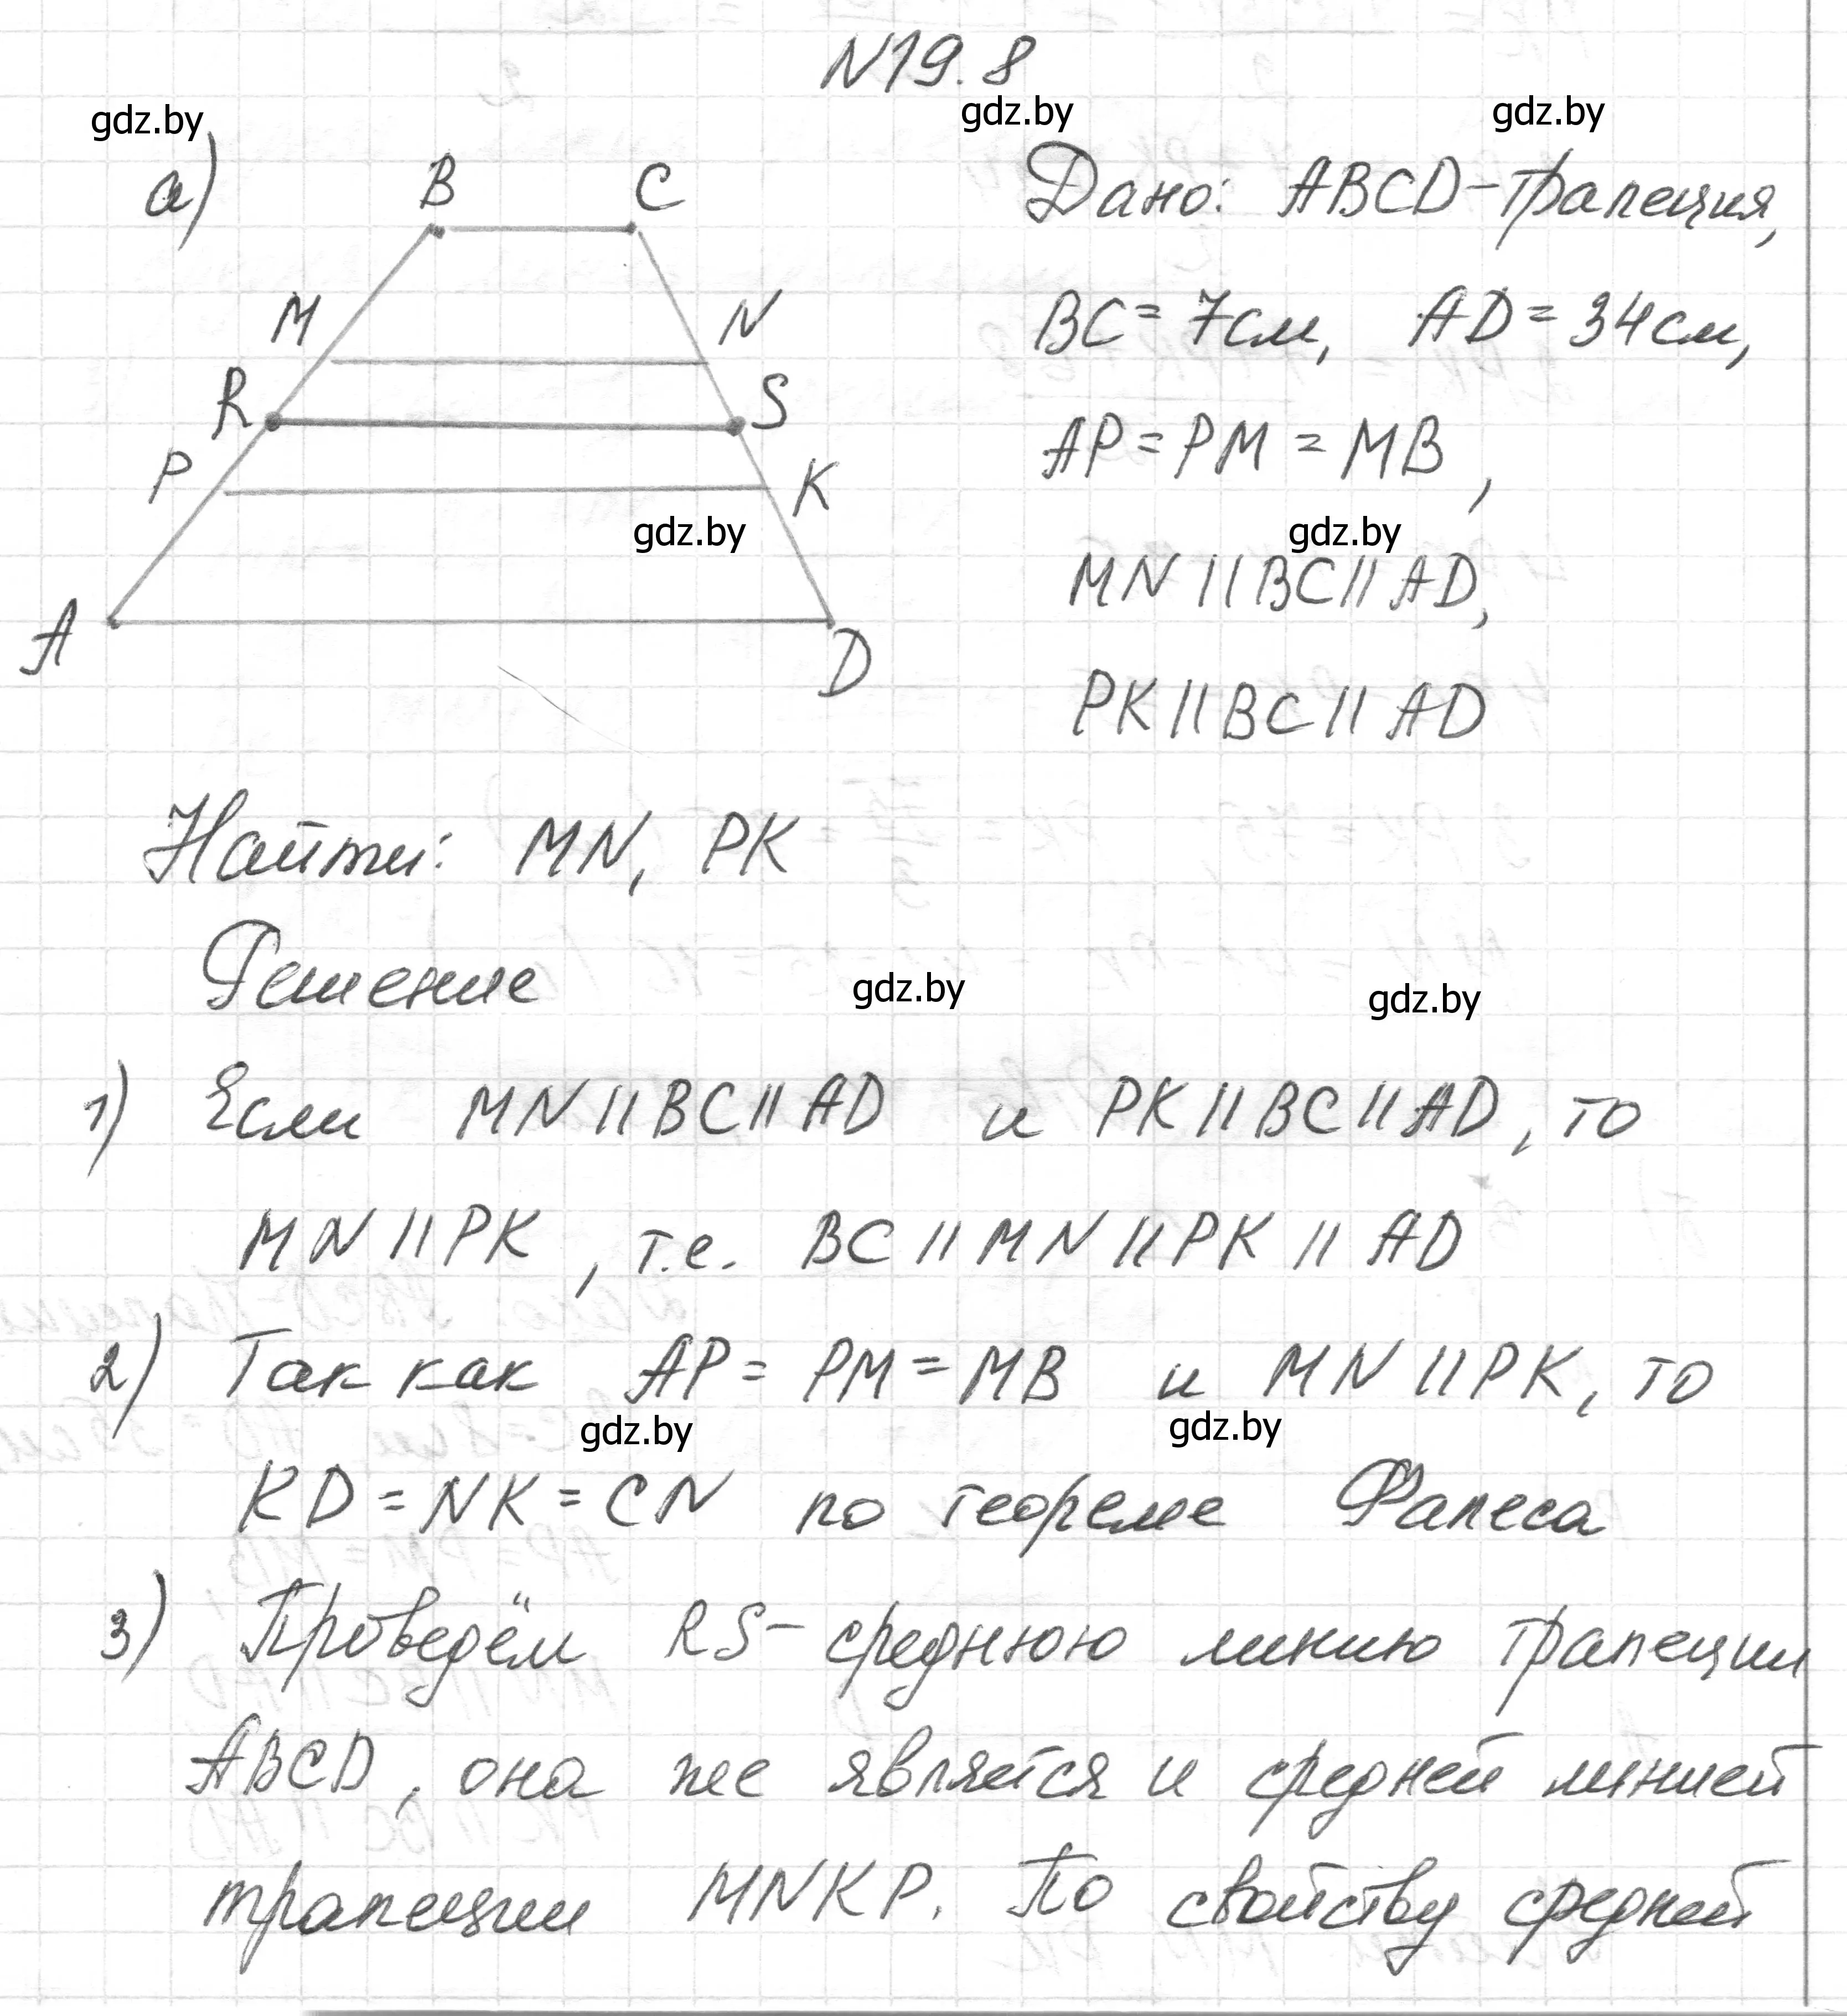 N19.8
gdz.by gdz.by gdz.by
а)
B C
M N
R S
P K
A D
gdz.by
Дано: ABCD-трапеция,
BC = 7см, AD = 34см,
AP = PM = MB,
gdz.by
MN || BC || AD,
PK || BC || AD
Найти: MN, PK
Решение
gdz.by gdz.by
1) Если MN || BC || AD и PK || BC || AD, то
MN || PK, т.е. BC || MN || PK || AD
2) Так как AP = PM = MB и MN || PK, то
gdz.by gdz.by
KD = NK = CN по теореме Фалеса
3) Проведём RS - среднюю линию трапеции
ABCD, она же является и средней линией
трапеции MNKP. По свойству средней